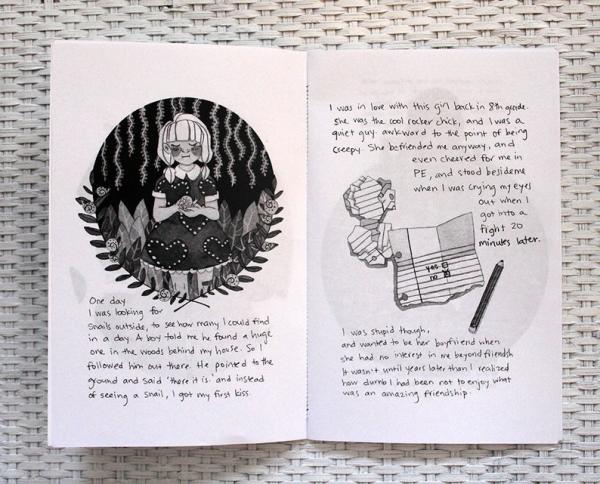 One day
I was looking for
snails outside, to see how many I could find
in a day. A boy told me he found a huge
one in the woods behind my house. So I
followed him out there. He pointed to the
ground and said 'there it is' and instead
of seeing a snail, I got my first kiss.
I was in love with this girl back in 8th grade.
She was the cool rocker chick, and I was a
quiet guy. awkward to the point of being
creepy. She befriended me anyway, and
even cheered for me in
PE, and stood beside me
when I was crying my eyes
out when I
got into a
fight 20
minutes later.
yes
no
I was stupid though,
and wanted to be her boyfriend when
she had no interest in me beyond friendship
It wasn't until years later than I realized
how dumb I had been not to enjoy what
was an amazing friendship.